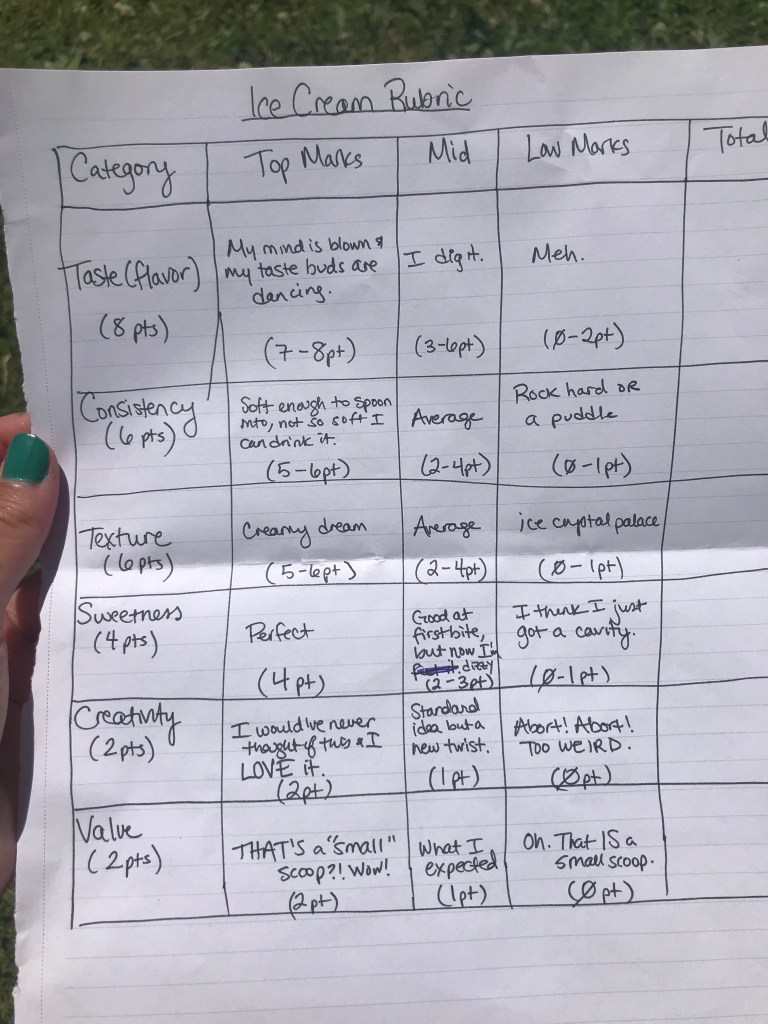 Ice Cream Rubric
Category
Top Marks
Mid
Low Marks
Total
Taste (flavor)
(8 pts)
My mind is blown &
my taste buds are
dancing.
(7-8pt)
I dig it.
(3-6pt)
Meh.
(0-2pt)
Consistency
(6 pts)
Soft enough to spoon
into, not so soft I
can drink it.
(5-6pt)
Average
(2-4pt)
Rock hard OR
a puddle
(0-1pt)
Texture
(6pts)
Creamy dream
(5-6pt)
Average
(2-4pt)
ice crystal palace
(0-1pt)
Sweetness
(4pts)
Perfect
(4pt)
Good at
first bite,
but now I'm
dizzy
(2-3pt)
I think I just
got a cavity.
(0-1pt)
Creativity
(2pts)
I would've never
thought of this & I
LOVE it.
(2pt)
Standard
idea but a
new twist.
(1pt)
Abort! Abort!
TOO WEIRD.
(0pt)
Value
(2pts)
THAT'S a "small"
scoop?! Wow!
(2pt)
What I
expected
(1pt)
Oh. That IS a
small scoop.
(0pt)